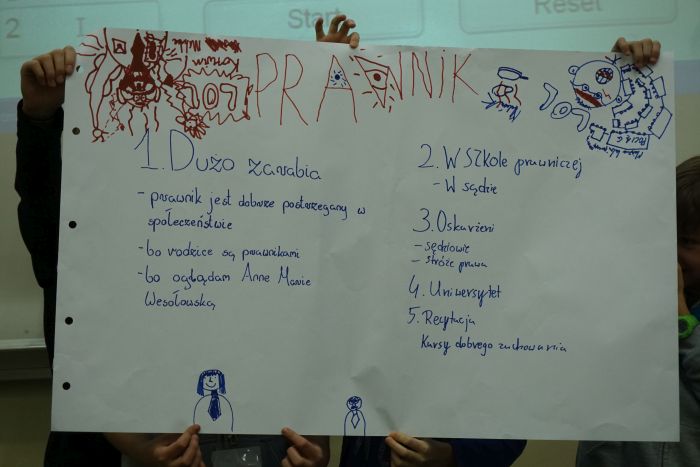 2 I Start Reset
PRAWNIK
JOJ
JOJ
1. Dużo zarabia
- prawnik jest dobrze postrzegany w
społeczeństwie
- bo rodzice są prawnikami
- bo oglądam Anne Marie
Wesołowską
2. W Szkole prawniczej
- W sądzie
3. Oskarżeni
- sędziowie
- stróże prawa
4. Uniwersytet
5. Recytacja
Kursy dobrego zachowania